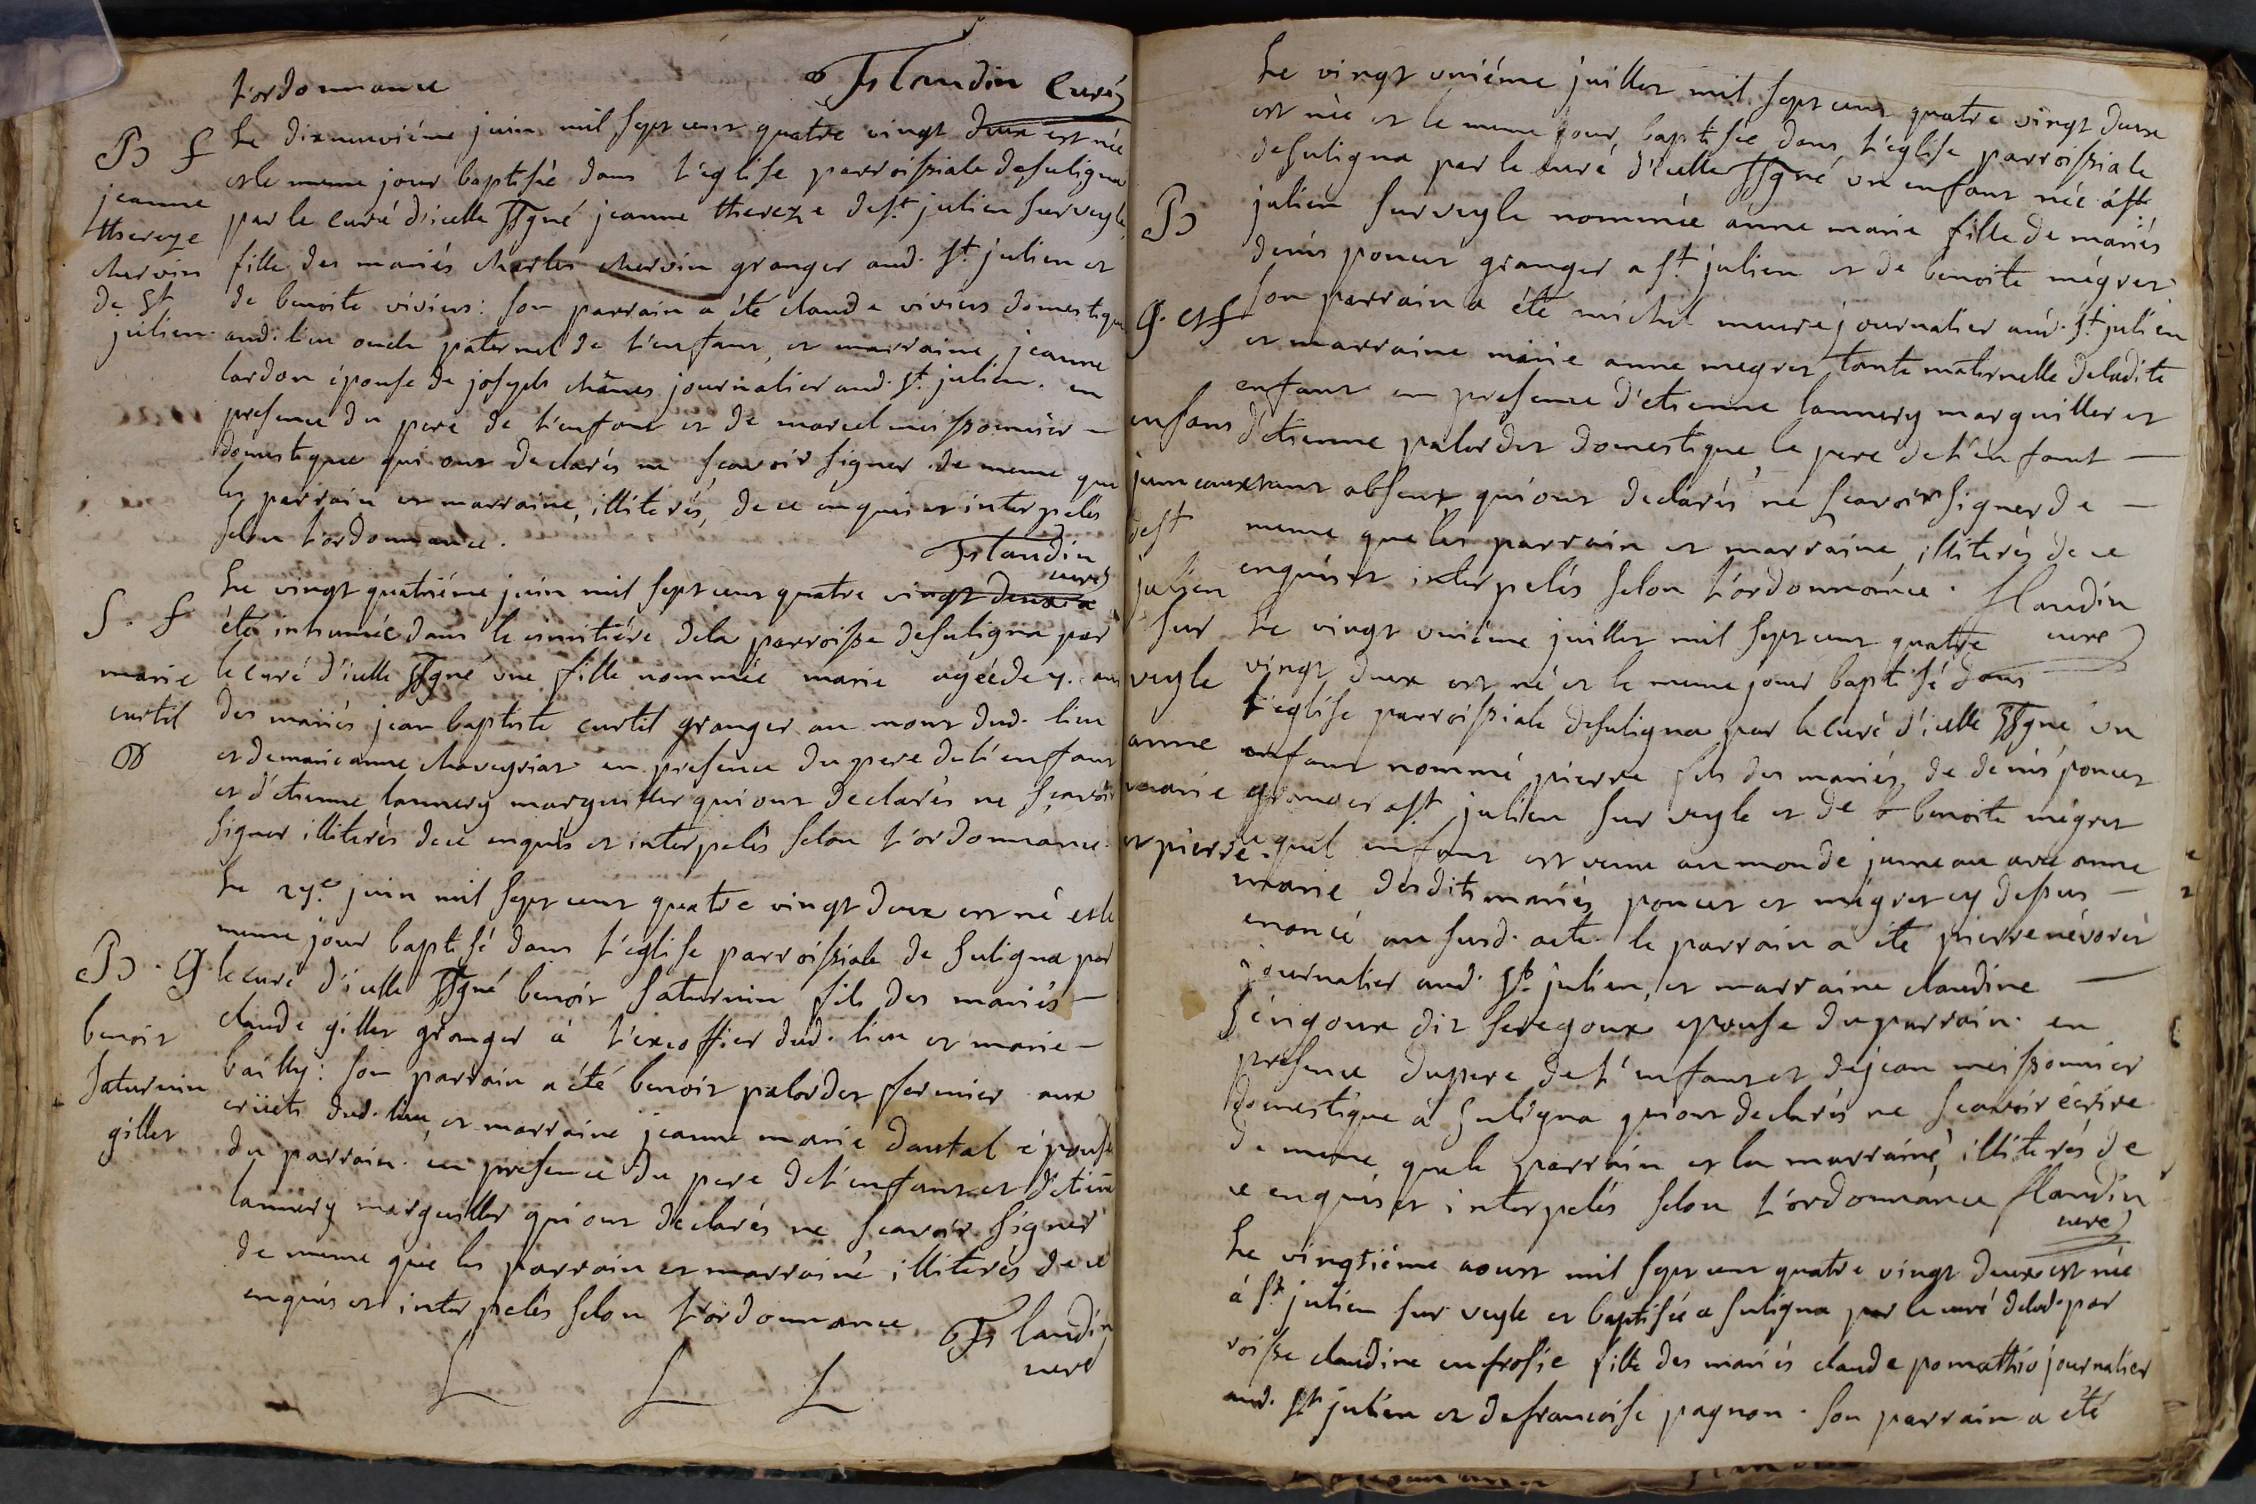 l'ordonnance
Flandin Curé
B f
jeanne
thereze
chervin
de St
julien
Le dixneuviéme juin mil sept cent quatre vingt deux est née
et le meme jour baptisée dans l'eglise parroissiale de suligna
par le curé d'icelle ssgné jeanne thereze de st julien sur veyle
fille des mariés charles chervin granger aud. st julien et
de benoite viviens: son parrain a été claude viviens domestique
aud. lieu oncle paternel de l'enfant, et marraine jeanne
lardon épouse de joseph chânes journalier aud. st julien. en
presence du pere de l'enfant et de marcel meissonnier
domestique qui ont declarés ne scavoir signer de meme que
les parrain et marraine, illiterés, de ce enquis et interpelés
selon l'ordonnance.
Flandin
curé
S. f
marie
curtil
Le vingt quatriéme juin mil sept cent quatre vingt deux a
été inhumée dans le cimitiére dela parroisse de suligna par
le curé d'icelle ssgné une fille nommée marie agée de 7. ans
des mariés jean baptiste curtil granger au mont dud. lieu
et de marie anne chaveyriat en presence du pere de l'enfant
et d'etienne lannery marguiller qui ont declarés ne scavoir
signer illiterés de ce enquis et interpelés selon l'ordonnance.
B. G
benoit
saturnin
gillet
Le 27e. juin mil sept cent quatre vingt deux est né et le
meme jour baptisé dans l'eglise parroissiale de suligna par
le curé d'icelle ssgné benoit saturnin fils des mariés
claude gillet granger à l'exoffier dud. lieu et marie
bailly: son parrain a été benoit palordet fermier aux
criiets dud. lieu, et marraine jeanne marie dautal épouse
du parrain. en presence du pere de l'enfant et d'etien
lannery marguiller qui ont declarés ne scavoir signer
de meme que les parrain et marraine illiterés de ce
enquis et interpelés selon l'ordonnance
Flandin
curé
B
G. et f
enfans
jumeaux
de st
julien
sur
veyle
anne
marie
et pierre.
Le vingt uniéme juillet mil sept cent quatre vingt deux
est née et le meme jour baptisée dans l'eglise parroissiale
de suligna par le curé d'icelle ssgné un enfant née à st
julien sur veyle nommée anne marie fille de mariés
denis poncet granger a st julien et de benoite mégret.
son parrain a été michel meure journalier aud. st julien
et marraine marie anne megret tante maternelle de ladite
enfant en presence d'etienne lannery marguiller et
d'etienne palordet domestique, le pere de l'enfant
etant absent qui ont declarés ne scavoir signer de
meme que les parrain et marraine illiterés de ce
enquis et interpelés selon l'ordonnance.
flandin
curé
Le vingt uniéme juillet mil sept cent quatre
vingt deux est né et le meme jour baptisé dans
l'eglise parroissiale de suligna par le curé d'icelle ssgné un
enfant nommé pierre fils des mariés de denis poncet
granger a st julien sur veyle et de b benoite mégret
lequel enfant est venu au monde jumeau avec anne
marie desdits mariés poncet et mégret cy dessus
enoncé au susd. acte. le parrain a été pierre névoret
journalier aud. st. julien, et marraine claudine
séngoux dit seregoux epouse du parrain. en
presence du pere de l'enfant et de jean meissonnier
domestique à suligna qui ont declarés ne scavoir écrire
de meme que le parrain et la marraine, illiterés de
ce enquis et interpelés selon l'ordonnance
flandin
curé
Le vingtiéme aoust mil sept cent quatre vingt deux est née
à st julien sur veyle et baptisée a suligna par le curé de lad. par
roisse claudine enfrosie fille des mariés claude pomathio journalier
aud. st julien et de francoise pagnon. son parrain a été